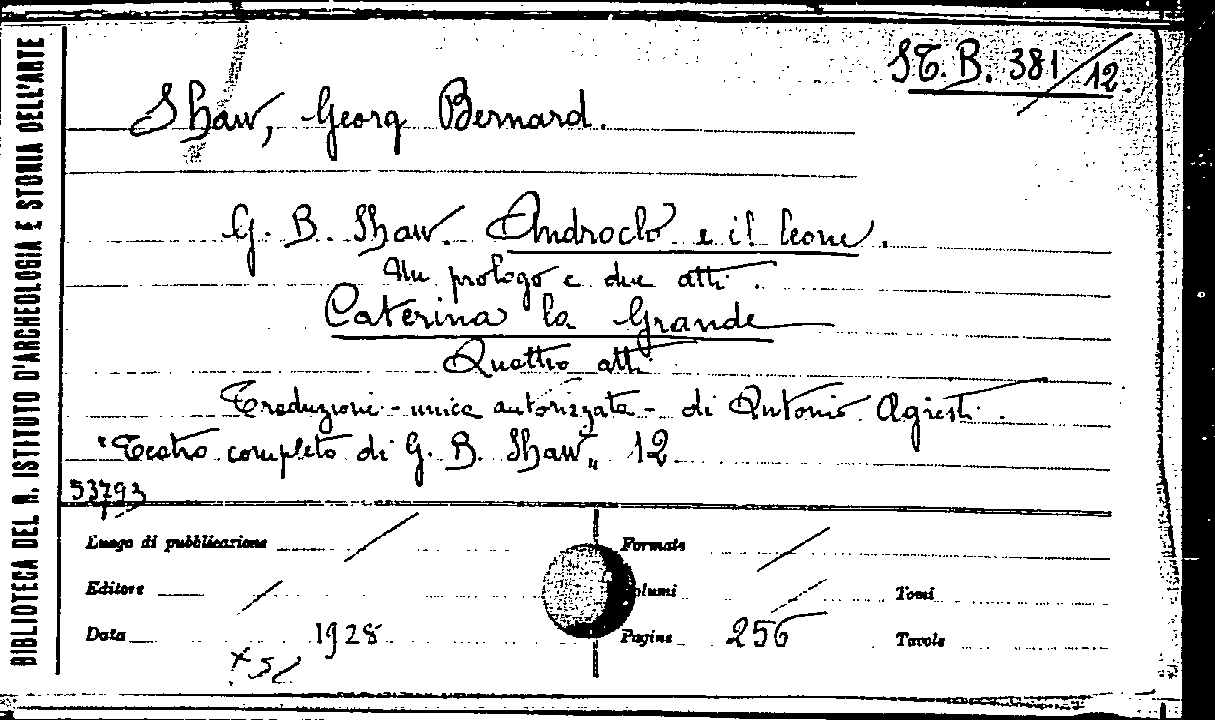 ST. B. 381/12.
Shaw, Georg Bernard.
G. B. Shaw. Androclo e il leone.
Un prologo e due atti.
Caterina la Grande
Quattro atti
Traduzione - unica autorizzata - di Antonio Agresti.
"Teatro completo di G. B. Shaw„ 12
53793
Luogo di pubblicazione / Formato /
Editore / olumi / Tomi
Data 1928 Pagine 256 Tavole
BIBLIOTECA DEL R. ISTITUTO D'ARCHEOLOGIA E STORIA DELL'ARTE